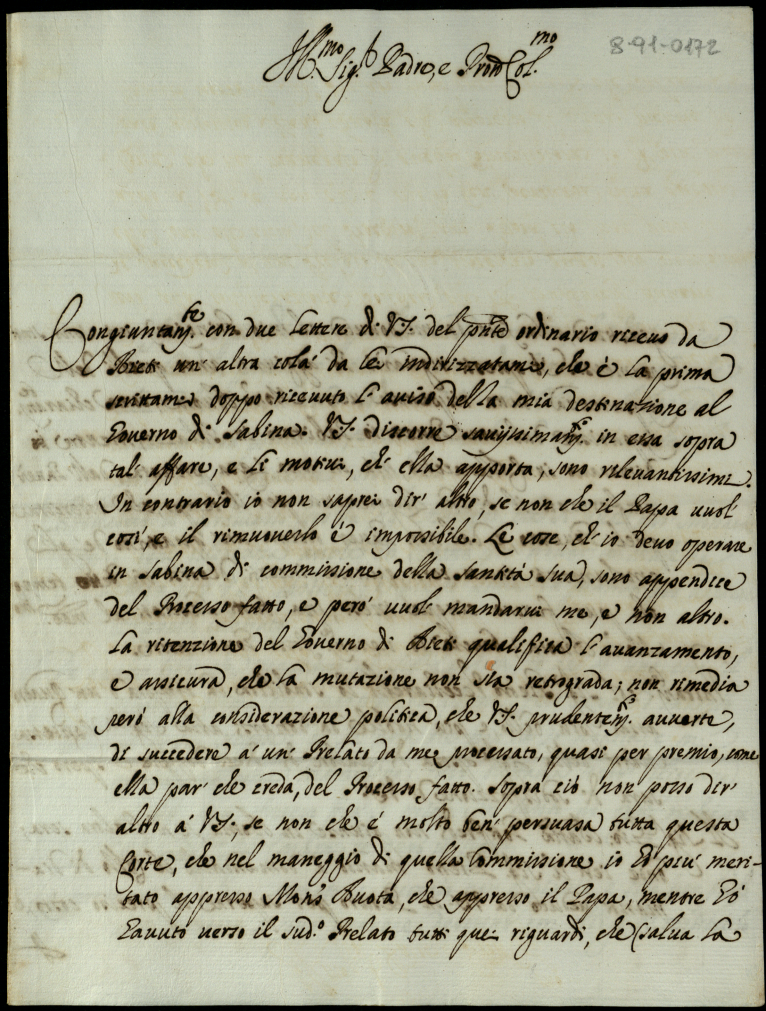 8-91-0172
Ill.mo Sig.r Padre, e Pron Col.mo
Congiuntam.te con due lettere di VS. del pnte ordinario ricevo da
Rieti un' altra colà da lei indirizzatami, che è la prima
scrittami doppo ricevuto l' aviso della mia destinazione al
Governo di Sabina. VS. discorre saviissimam.te in essa sopra
tal' affare, e li motivi, ch' ella apporta, sono rilevantissimi.
In contrario io non saprei dir' altro, se non che il Papa vuol
così, e il rimuoverlo è impossibile. Le cose, ch' io devo operare
in Sabina di commissione della Santità sua, sono appendice
del Processo fatto, e però vuol mandarvi me, e non altro.
La ritenzione del Governo di Rieti qualifica l' avanzamento,
e assicura, che la mutazione non sia retrograda; non rimedia
però alla considerazione politica, che VS. prudentem.te avverte,
di succedere à un' Prelato da me processato, quasi per premio, come
ella par' che creda, del Processo fatto. Sopra ciò non posso dir'
altro à VS., se non che è molto ben' persuasa tutta questa
Corte, che nel maneggio di quella Commissione io hò più meri-
tato appresso Mons.r Buota, che appresso il Papa, mentre hò
havuto verso il sud.o Prelato tutti quei riguardi, che (salva la